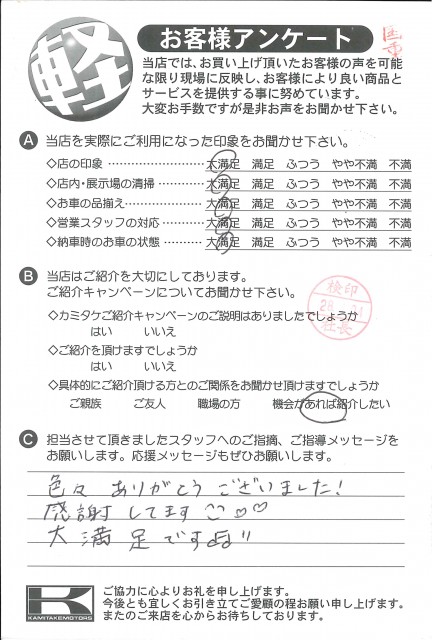 軽
お客様アンケート
当店では、お買い上げ頂いたお客様の声を可能
な限り現場に反映し、お客様により良い商品と
サービスを提供する事に努めています。
大変お手数ですが是非お声をお聞かせ下さい。
A 当店を実際にご利用になった印象をお聞かせ下さい。
◇店の印象 ……………………… 大満足 満足 ふつう やや不満 不満
◇店内・展示場の清掃 ………… 大満足 満足 ふつう やや不満 不満
◇お車の品揃え ………………… 大満足 満足 ふつう やや不満 不満
◇営業スタッフの対応 ………… 大満足 満足 ふつう やや不満 不満
◇納車時のお車の状態 ………… 大満足 満足 ふつう やや不満 不満
B 当店はご紹介を大切にしております。
ご紹介キャンペーンについてお聞かせ下さい。
検印
社長
◇カミタケご紹介キャンペーンのご説明はありましたでしょうか
はい いいえ
◇ご紹介を頂けますでしょうか
はい いいえ
◇具体的にご紹介頂ける方とのご関係をお聞かせ頂けますでしょうか
ご親族 ご友人 職場の方 機会があれば紹介したい
C 担当させて頂きましたスタッフへのご指摘、ご指導メッセージを
お願いします。応援メッセージもぜひお願いします。
色々 ありがとう ございました!
感謝 してます ♡♡
大満足です♫!!
K
KAMITAKEMOTORS
ご協力に心よりお礼を申し上げます。
今後とも宜しくお引き立てご愛顧の程お願い申し上げます。
またのご来店を心からお待ちしております。